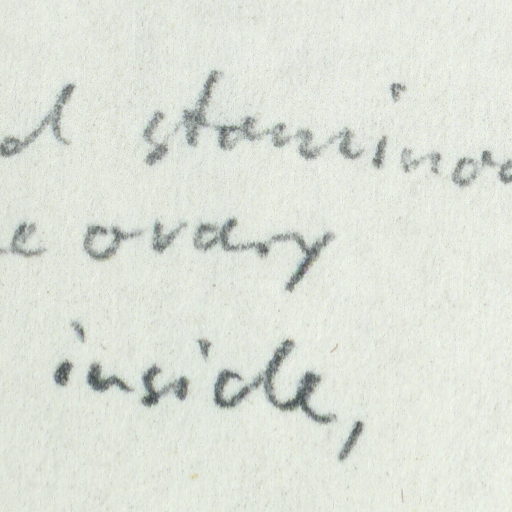 d staminod
e ovary
inside,